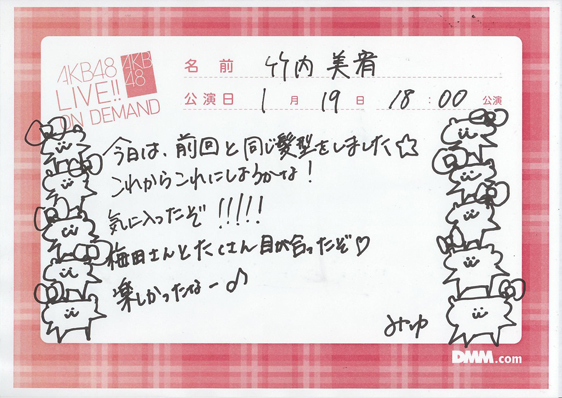 AKB48
LIVE!!
ON DEMAND
AKB
48
名前 竹内美宥
公演日 1月19日 18:00 公演
今日は、前回と同じ髪型をしました☆
これからこれにしようかな!
気に入ったぞ!!!!!
梅田さんとたくさん目が合ったぞ♡
楽しかったなー♪
みゆ
DMM.com